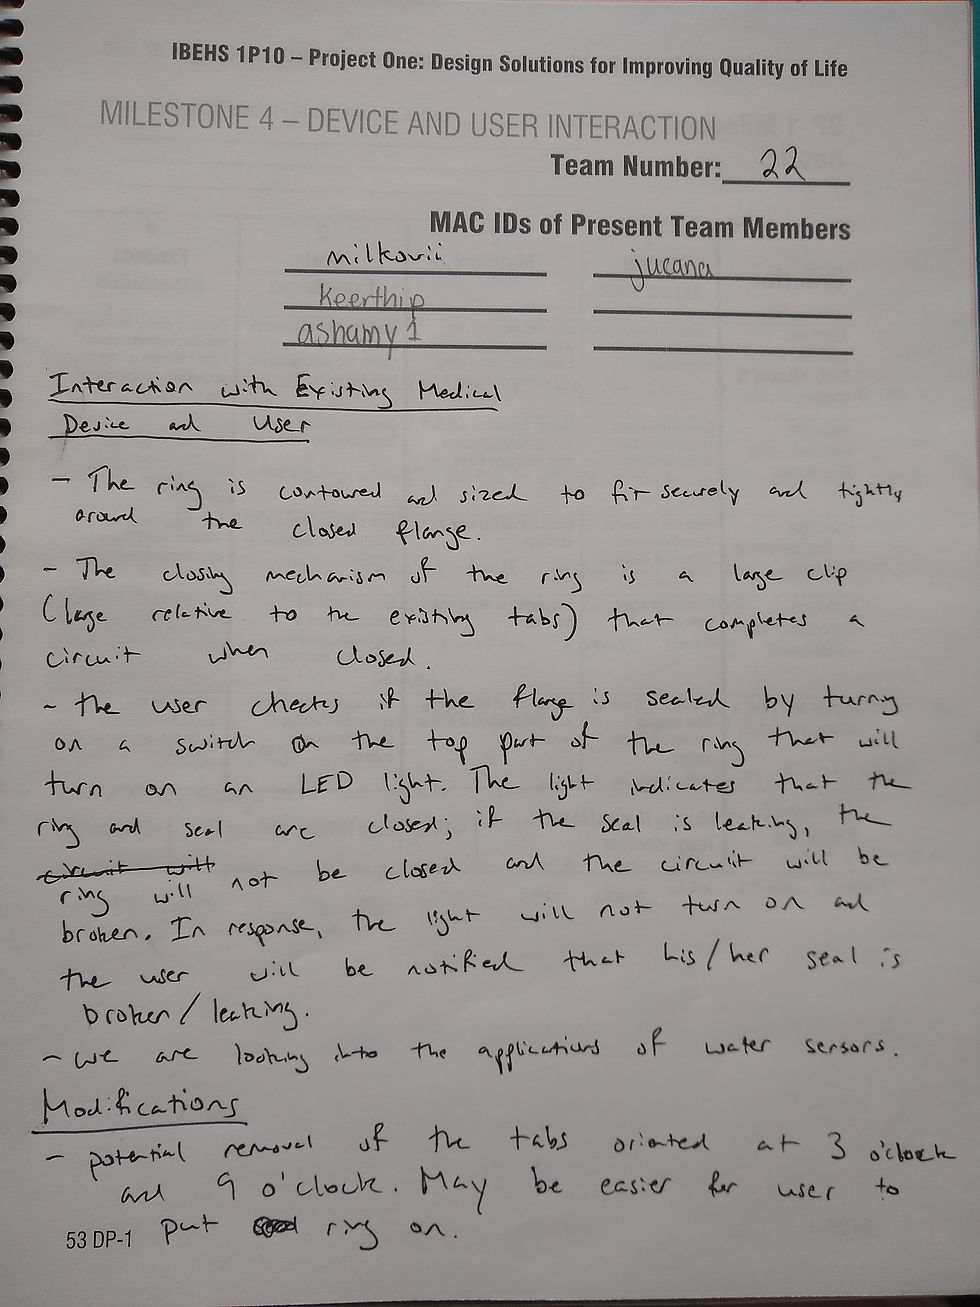 IBEHS 1P10 – Project One: Design Solutions for Improving Quality of Life
MILESTONE 4 – DEVICE AND USER INTERACTION
Team Number: 22
MAC IDs of Present Team Members
milkovii jucana
Keerthip
ashamy1
Interaction with Existing Medical
Device and User
- The ring is contoured and sized to fit securely and tightly
around the closed flange.
- The closing mechanism of the ring is a large clip
(large relative to the existing tabs) that completes a
circuit when closed.
- the user checks if the flange is sealed by turning
on a switch on the top part of the ring that will
turn on an LED light. The light indicates that the
ring and seal are closed; if the seal is leaking, the
circuit will
ring will not be closed and the circuit will be
broken. In response, the light will not turn on and
the user will be notified that his/her seal is
broken/leaking.
- we are looking into the applications of water sensors.
Modifications
- potential removal of the tabs oriented at 3 o'clock
and 9 o'clock. May be easier for user to
put ring on.
53 DP-1